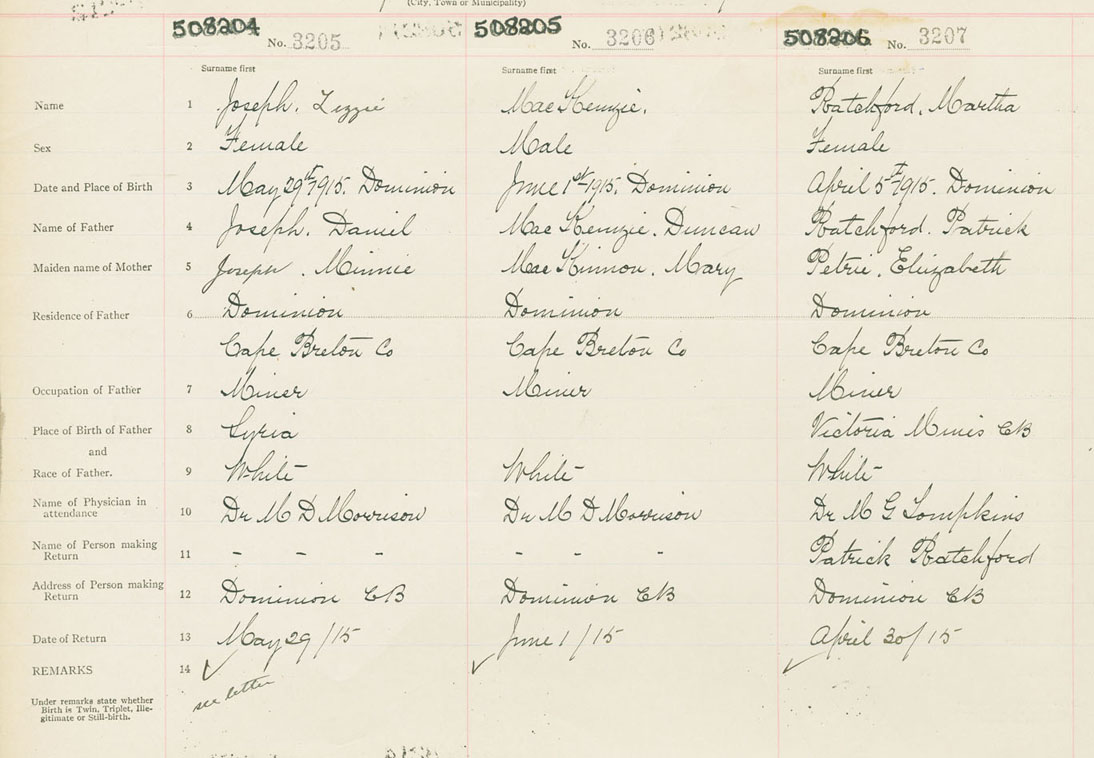 (City, Town or Municipality)
508204 No. 3205 508205 No. 3206 508206 No. 3207
Surname first Surname first Surname first
Name 1 Joseph, Lizzie MacKenzie, Ratchford, Martha
Sex 2 Female Male Female
Date and Place of Birth 3 May 29th 1915. Dominion June 1st 1915. Dominion April 5th 1915. Dominion
Name of Father 4 Joseph. Daniel MacKenzie. Duncan Ratchford. Patrick
Maiden name of Mother 5 Joseph. Minnie MacKinnon. Mary Petrie. Elizabeth
Residence of Father 6 Dominion Dominion Dominion
Cape Breton Co Cape Breton Co Cape Breton Co
Occupation of Father 7 Miner Miner Miner
Place of Birth of Father 8 Syria Victoria Mines CB
and
Race of Father. 9 White White White
Name of Physician in
attendance 10 Dr M D Morrison Dr M D Morrison Dr M G Tompkins
Name of Person making
Return 11 - - - - - - Patrick Ratchford
Address of Person making
Return 12 Dominion CB Dominion CB Dominion CB
Date of Return 13 May 29/15 June 1/15 April 30/15
REMARKS 14
see letter
Under remarks state whether
Birth is Twin, Triplet, Ille-
gitimate or Still-birth.